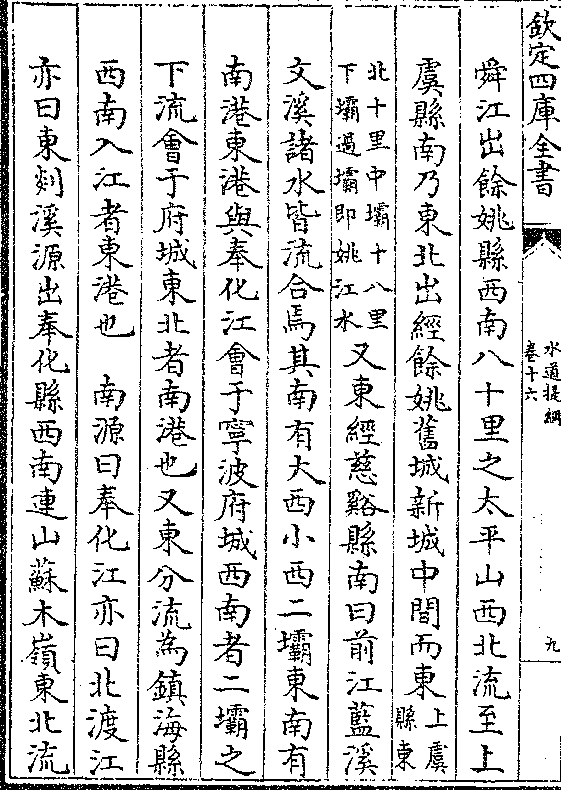 欽定四庫全書
水道提綱
卷十六
九
舜江出餘姚縣西南八十里之太平山西北流至上
虞縣南乃東北出經餘姚舊城新城中間而東上虞縣東
北十里中壩十八里下壩過壩即姚江水又東經慈谿縣南曰前江藍溪
文溪諸水皆流合焉其南有大西小西二壩東南有
南港東港與奉化江會于寧波府城西南者二壩之
下流會于府城東北者南港也又東分流為鎮海縣
西南入江者東港也 南源曰奉化江亦曰北渡江
亦曰東剡溪源出奉化縣西南連山蘇木嶺東北流